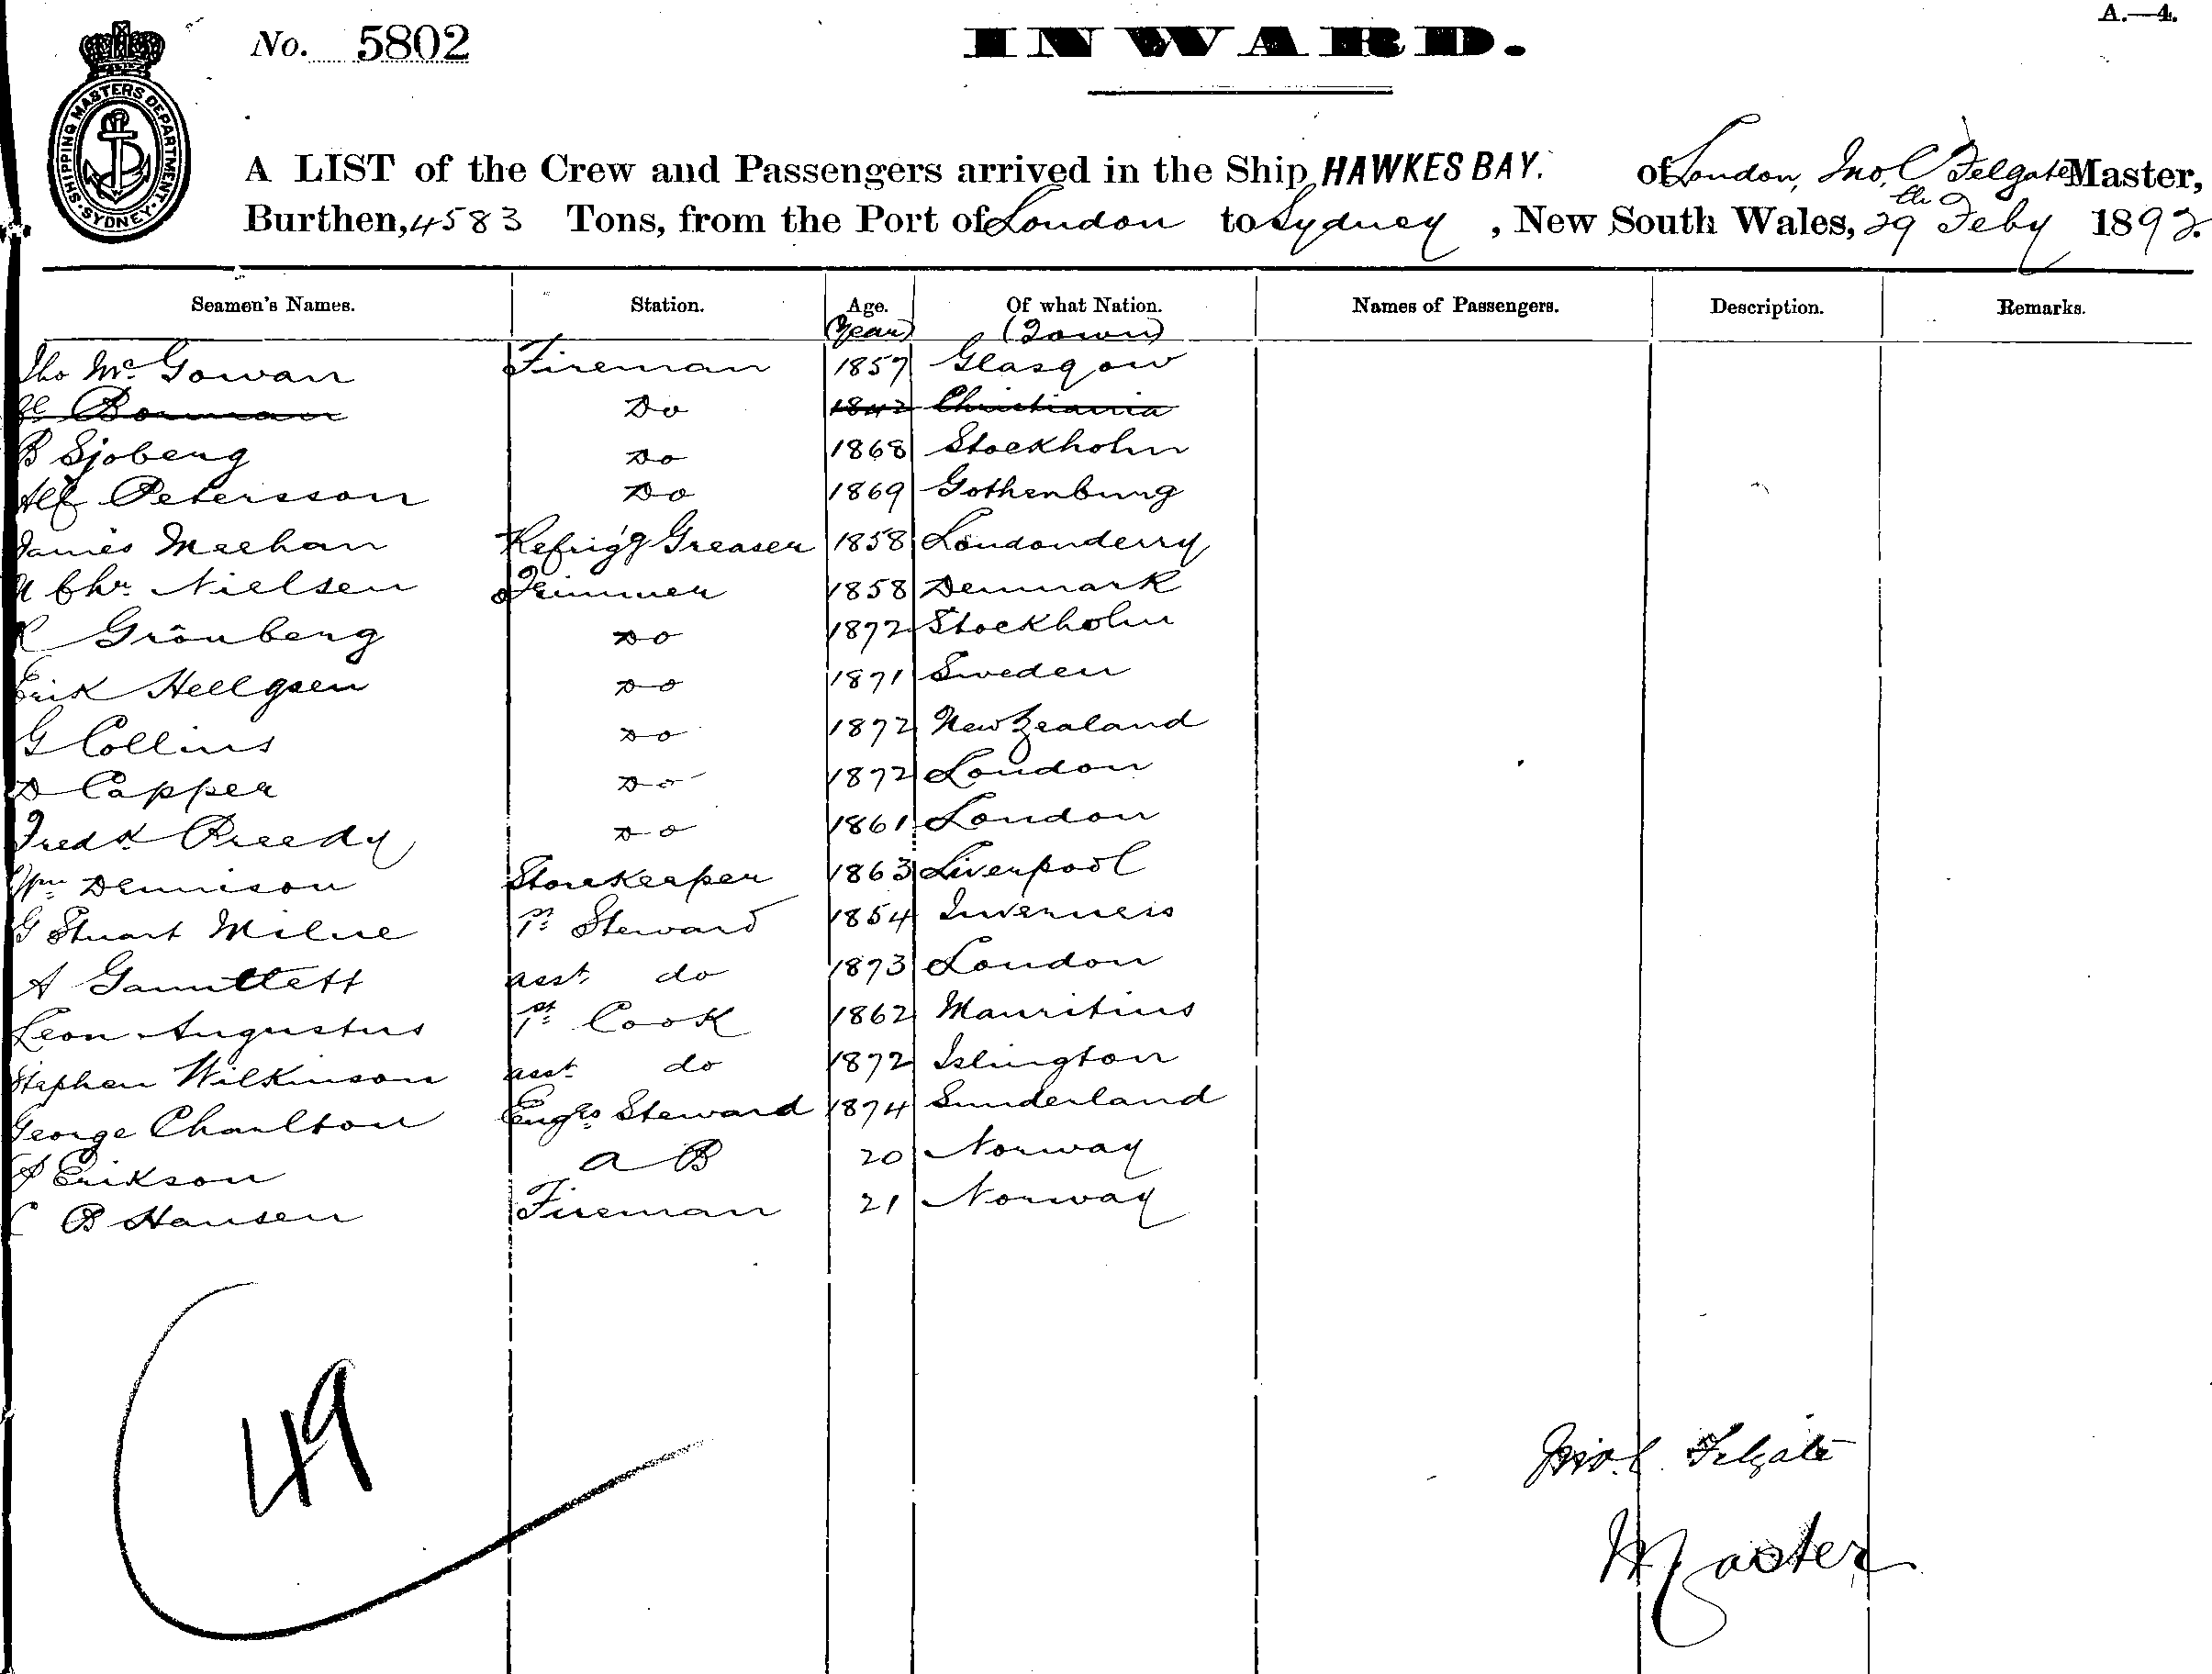 A.—4.
No. 5802
INWARD.
SHIPPING MASTERS DEPARTMENT. SYDNEY.
A LIST of the Crew and Passengers arrived in the Ship HAWKES BAY. of London, Jno. C Felgate Master,
Burthen, 4583 Tons, from the Port of London to Sydney, New South Wales, 29th Feby 1892.
Seamen's Names. Station. Age. Of what Nation. Names of Passengers. Description. Remarks.
(Year) (Town)
Tho McGowan Fireman 1857 Glasgow
Borman Do 1842 Christiania
B Sjoberg Do 1868 Stockholm
Alf Petersson Do 1869 Gothenburg
James Meehan Refrig'g Greaser 1858 Londonderry
Chr. Nielsen Trimmer 1858 Denmark
Grönberg Do 1872 Stockholm
Erik Hellgren Do 1871 Sweden
G Collins Do 1872 New Zealand
D Capper Do 1872 London
Fredk. Preedy Do 1861 London
Wm Dennison Storekeeper 1863 Liverpool
G Stuart Milne 1st Steward 1854 Inverness
A Gauntlett asst. do 1873 London
Leon Augustus 1st Cook 1862 Mauritius
Stephen Wilkinson asst. do 1872 Islington
George Charlton Engrs. Steward 1874 Sunderland
Erikson A B 20 Norway
C B Hansen Fireman 21 Norway
49
Jno. C. Felgate
Master